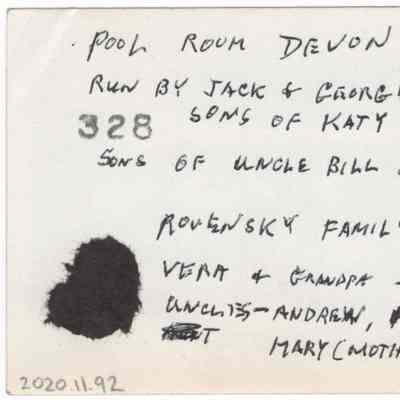 POOL ROOM DEVON
RUN BY JACK & GEORG
328 SONS OF KATY
SONS OF UNCLE BILL
ROVENSKY FAMIL
VERA & GRANDPA
UNCLES - ANDREW,
MARY (MOTH
2020.11.92